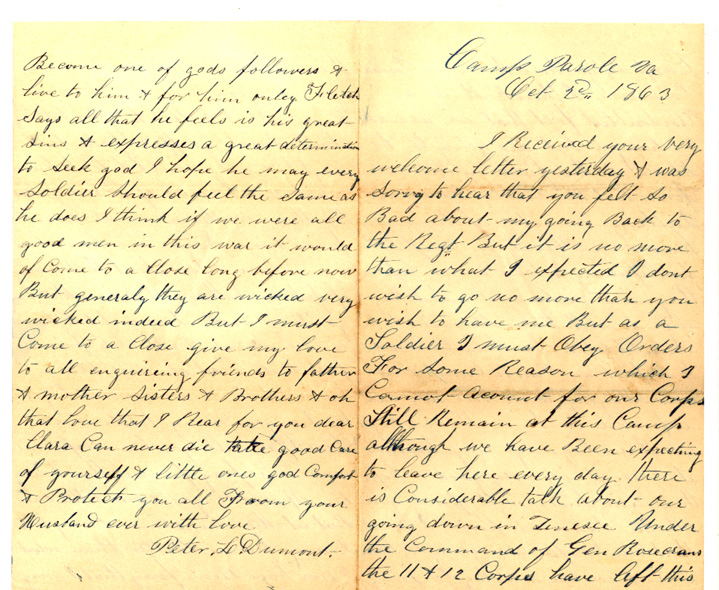 Camp Parole Va
Oct 2d 1863
I Received your very
welcome letter yesterday & was
Sorry to hear that you felt so
Bad about my going Back to
the Regt But it is no more
than what I expected I dont
wish to go no more than you
wish to have me But as a
Soldier I must Obey Orders
For Some Reason which I
Cannot acount for our Corps
Still Remain at this Camp
although we have Been expecting
to leave here every day there
is Considerable talk about our
going down in Tenesee Under
the Command of Gen Rosecrans
the 11 & 12 Corps have left this
Become one of gods followers &
live to him & for him onley
Says all that he feels is his great
Sins & expresses a great determination
to Seek god I hope he may every
Soldier Should feel the Same as
he does I think if we were all
good men in this war it would
of Come to a Close long before now
But generaly they are wicked very
wicked indeed But I must
Come to a Close give my love
to all enquireing friends to father
& mother Sisters & Brothers & oh
that love that I Bear for you dear
Clara Can never die take good Care
of yourself & little ones god Comfort
& Protect you all From your
Husband ever with love
Peter L Dumont.